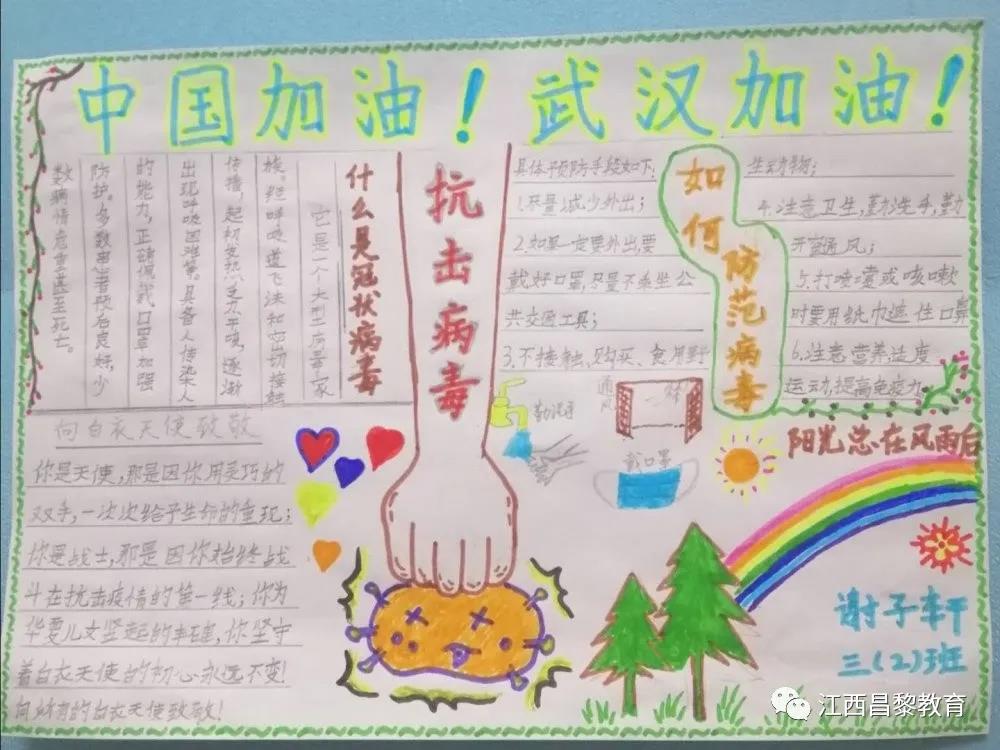 中国加油！武汉加油！
什么是冠状病毒
它是一个大型病毒家
族。经呼吸道飞沫和密切接触
传播，起初发热乏力干咳，逐渐
出现呼吸困难等。具备人传染人
的能力，正确佩戴口罩加强
防护。多数患者预后良好，少
数病情危重甚至死亡。
抗击病毒
如何
防范病毒
具体预防手段如下：
1.尽量减少外出；
2.如果一定要外出，要
戴好口罩，尽量不乘坐公
共交通工具；
3.不接触、购买、食用野
生动物；
4.注意卫生，勤洗手，勤
开窗通风；
5.打喷嚏或咳嗽
时要用纸巾遮住口鼻
6.注意营养适度
运动，提高免疫力
勤洗手
通风
戴口罩
向白衣天使致敬
你是天使，那是因你用灵巧的
双手，一次次给予生命的重现；
你是战士，那是因你始终战
斗在抗击疫情的第一线；你为
华夏儿女竖起的丰碑，你坚守
着白衣天使的初心永远不变！
向所有的白衣天使致敬！
阳光总在风雨后
谢子轩
三（2）班
江西昌黎教育